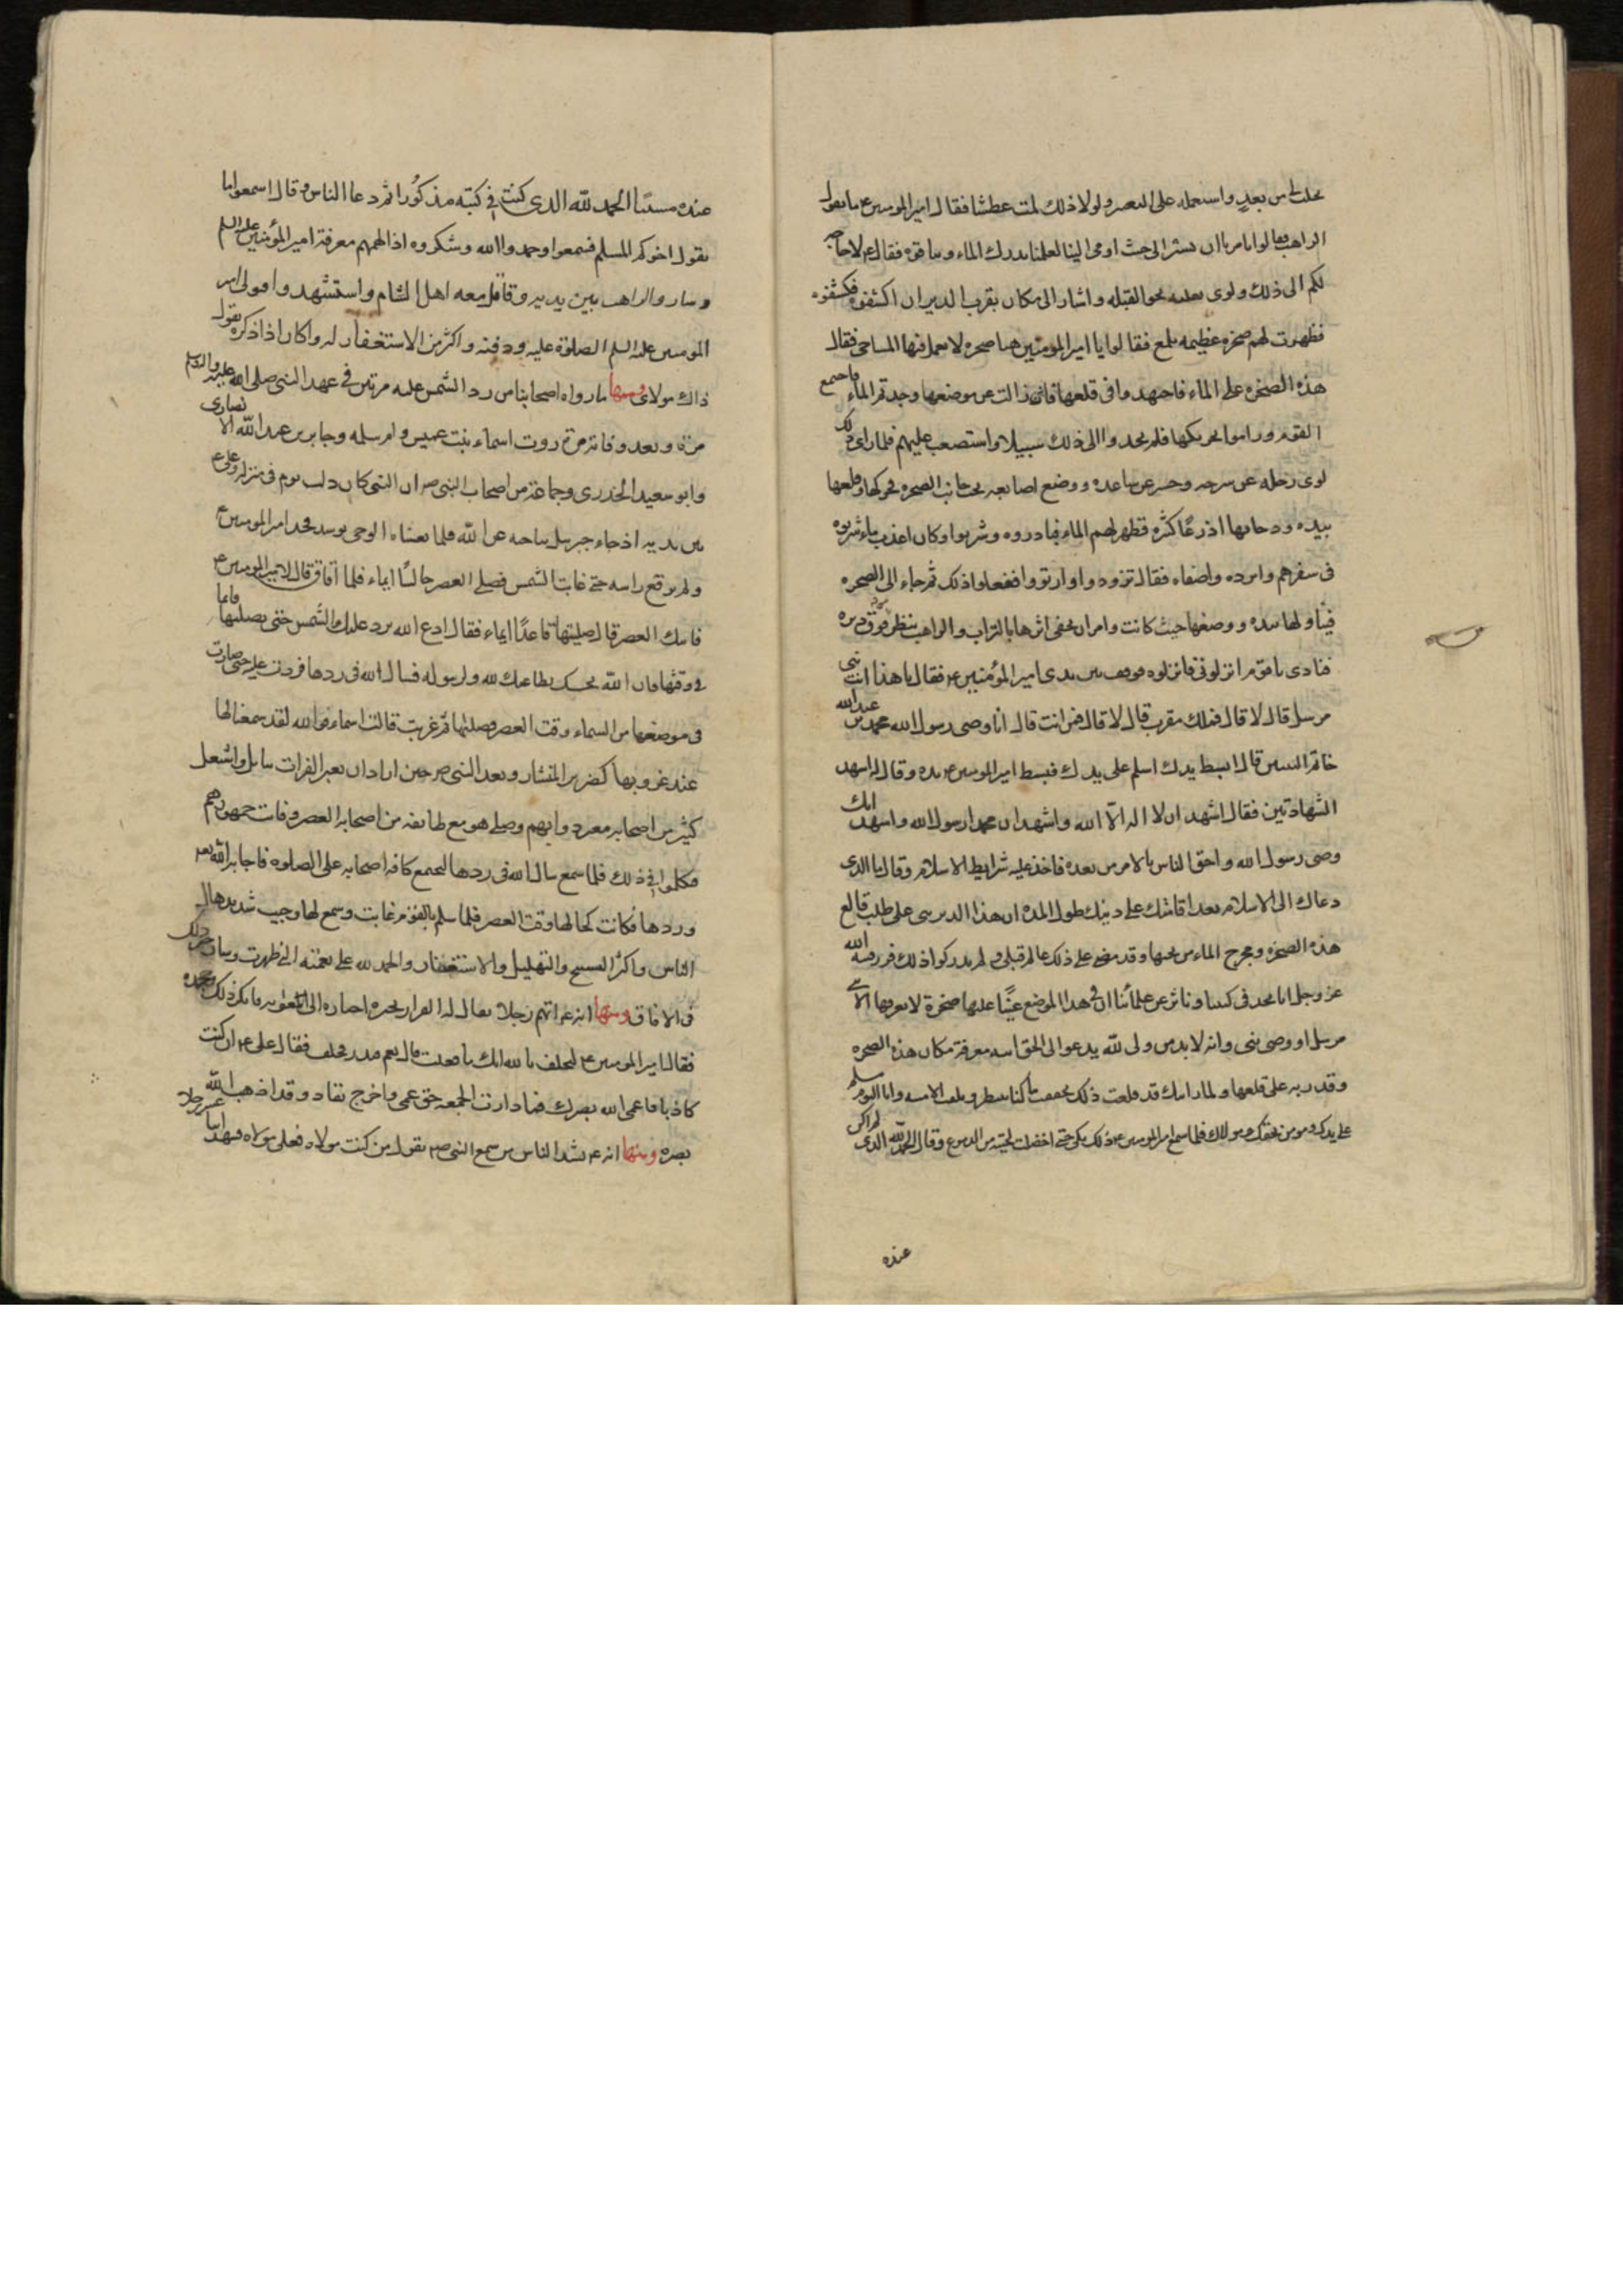 يحلب لي من بعيد واستعمله على التقصير ولولا ذلك لمت عطشا فقال امير المومنين ع ما يقول
الراهب فقالوا تامرنا ان نسير الى حيث اومى الينا لعلنا ندرك الماء وبنا قوة فقال ع لا حاجة
لكم الى ذلك ولوى بغلته نحو القبلة واشار الى مكان بقرب الدير ان اكشفوه فكشفوه
فظهرت لهم صخرة عظيمة تلمع فقالوا يا امير المؤمنين هنا صخرة لا تعمل فيها المساحي فقال
هذه الصخرة على الماء فاجتهدوا في قلعها فان زالت عن موضعها وجدتم الماء فاجتمع
القوم وراموا تحريكها فلم يجدوا الى ذلك سبيلا واستصعب عليهم فلما راى ذلك
لوى رجله عن سرجه وحسر عن ساعده ووضع اصابعه تحت جانب الصخرة فحركها وقلعها
بيده ودحا بها اذرعًا كثيرة فظهر لهم الماء فبادروه وشربوا وكان اعذب ماء شربوه
في سفرهم وابرده واصفاه فقال تزودوا وارتووا ففعلوا ذلك ثم جاء الى الصخرة
فتناولها بيده ووضعها حيث كانت وامر ان يعفى اثرها بالتراب والراهب ينظر من فوق ديره
فنادى يا قوم انزلوني فانزلوه فوقف بين يدي امير المؤمنين ع فقال يا هذا انت نبي
مرسل قال لا قال فملك مقرب قال لا قال فمن انت قال انا وصي رسول الله محمد بن عبدالله
خاتم النبيين قال ابسط يدك اسلم على يدك فبسط امير المومنين ع يده وقال له اشهد
الشهادتين فقال اشهد ان لا اله الا الله واشهد ان محمدا رسول الله واشهد انك
وصي رسول الله واحق الناس بالامر من بعده فاخذ عليه شرايط الاسلام وقال ما الذي
دعاك الى الاسلام بعد اقامتك على دينك طول المدة ان هذا الدير بني على طلب قالع
هذه الصخرة ومخرج الماء من تحتها وقد مضى على ذلك عالم قبلي ولم يدركوا ذلك فرزقنيه الله
عز وجل انا نجد في كتبنا وناثر عن علمائنا ان في هذا الموضع عينًا عليها صخرة لا يعرفها الا نبي
مرسل او وصي نبي وانه لا بد من ولي لله يدعو الى الحق ايته معرفة مكان هذه الصخرة
وقدرته على قلعها ولما رايتك قد فعلت ذلك تحققت ما كنا ننتظر وبلغت الامنية وانا اليوم مسلم
على يدك ومومن بحقك ومولاك فلما سمع امير المومنين ع ذلك بكى حتى اخضلت لحيته من الدموع وقال الحمد لله الذي لم اكن
عنده
عنده منسيًا الحمد لله الذي كنت في كتبه مذكورا ثم دعا الناس وقال اسمعوا ما
يقول اخوكم المسلم فسمعوا وحمدوا الله وشكروه اذ الهمهم معرفة امير المؤمنين عليه السلم
وسار والراهب بين يديه وقاتل معه اهل الشام واستشهد وتولى امير
المومنين عليه السلم الصلوة عليه ودفنه واكثر من الاستغفار له وكان اذا ذكره يقول
ذاك مولاي ومنها ما رواه اصحابنا من رد الشمس عليه مرتين في عهد النبي صلى الله عليه واله وسلم
مرة وبعد وفاته مرة روت اسماء بنت عميس وام سلمه وجابر بن عبد الله الانصاري
وابو سعيد الخدري وجماعة من اصحاب النبي ص ان النبي كان ذات يوم في منزله وعلي ع
بين يديه اذ جاء جبرئيل يناجيه عن الله فلما تغشاه الوحي توسد فخذ امير المومنين ع
ولم يرفع راسه حتى غابت الشمس فصلى العصر جالسًا ايماء فلما افاق قال لامير المومنين ع
فاتتك العصر قال صليتها قاعدًا ايماء فقال ادع الله يرد عليك الشمس حتى تصليها قائما
في وقتها فان الله يجيبك بطاعتك لله ولرسوله فسال الله في ردها فردت عليه حتى صارت
في موضعها من السماء وقت العصر فصلاها ثم غربت قالت اسماء فوالله لقد سمعنا لها
عند غروبها كصرير المنشار وبعد النبي ص حين اراد ان يعبر الفرات ببابل واشتغل
كثير من اصحابه بعبر دوابهم وصلى هو مع طائفة من اصحابه العصر وفات جمهورهم
فتكلموا في ذلك فلما سمع سال الله في ردها ليجتمع كافة اصحابه على الصلوة فاجابه الله تع
وردها فكانت كحالها وقت العصر فلما سلم بالقوم غابت وسمع لها وجيب شديد هال
الناس واكثروا التسبيح والتهليل والاستغفار والحمد لله على نعمته التي ظهرت وسار خبر ذلك
في الافاق ومنها انه ع اتهم رجلا يقال له العيزار بخبره اخباره الى معوية فانكر ذلك وجحده
فقال امير المومنين ع لتحلف بالله انك ما فعلت قال نعم فبدر فحلف فقال علي ع ان كنت
كاذبا فاعمى الله بصرك فما دارت الجمعة حتى عمي واخرج يقاد وقد اذهب الله
بصره ومنها انه ع نشد الناس من سمع النبي ص يقول من كنت مولاه فعلي مولاه فشهد اثنا عشر رجلا